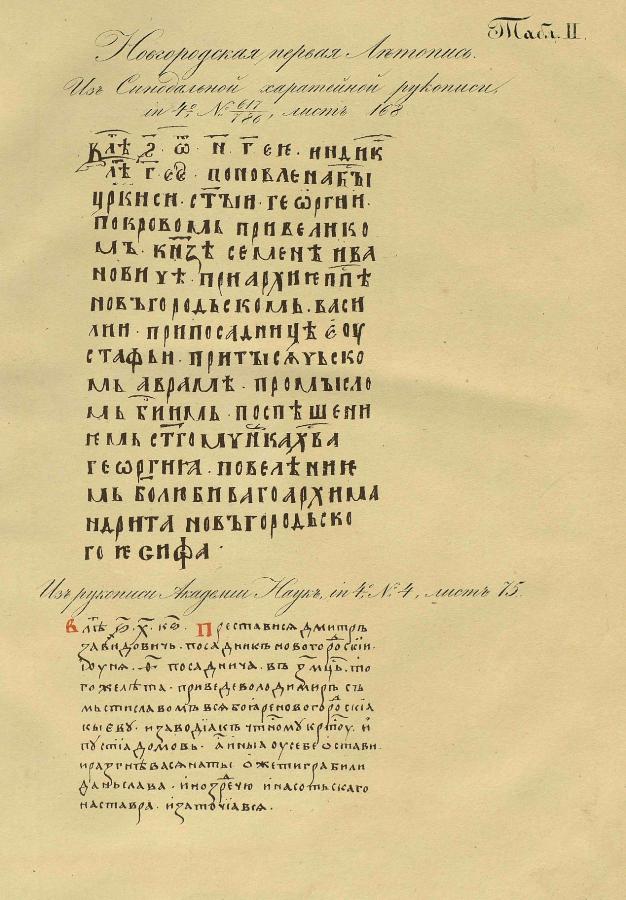 Табл. II.
Новгородская первая Лѣтопись.
Изъ Синодальной харатейной рукописи,
in 4º, № 617/786, листъ 168
В лѣ҃ ҂ѕ҃ ѿ н г҃ ен индик
лѣ҃ г҃ е҃ д҃ц поновлена бы҃
цр҃кꙑ си ст҃ꙑи геѡргии
покровомь при велико
мъ кнѧ҃зѣ семенѣ ива
новичѣ при архиѥпп҃ѣ
новъгородьскомь васи
лии при посадницѣ ѥоу
стафьи при тꙑсѧчьско
мь аврамѣ промꙑсло
мь бж҃иимь поспѣшени
ѥмь ст҃го мчн҃ка хв҃а
геѡргиꙗ повелѣниѥ
мь бо҃любиваго архима
ндрита новъгородьско
го ѥсифа
Изъ рукописи Академіи Наукъ, in 4º, № 4, листъ 75.
В лѣ҃ ѕ҃ х҃ к҃ѕ Преставися дмитръ
завидовичь посадникъ новогородскіи
іоуня посаднича въ з҃ мц҃ь то
го же лѣта приведе володимиръ съ
мьстиславомъ вся бояре новогородскіа
кыеву и заводія къ чтному крт҃оу и
пусти домовь а ины а оу себе остави
и разгнѣвася на ты оже ти грабили
даньслава и ноздречю и на сотьскаго
на ставра и заточі а вся